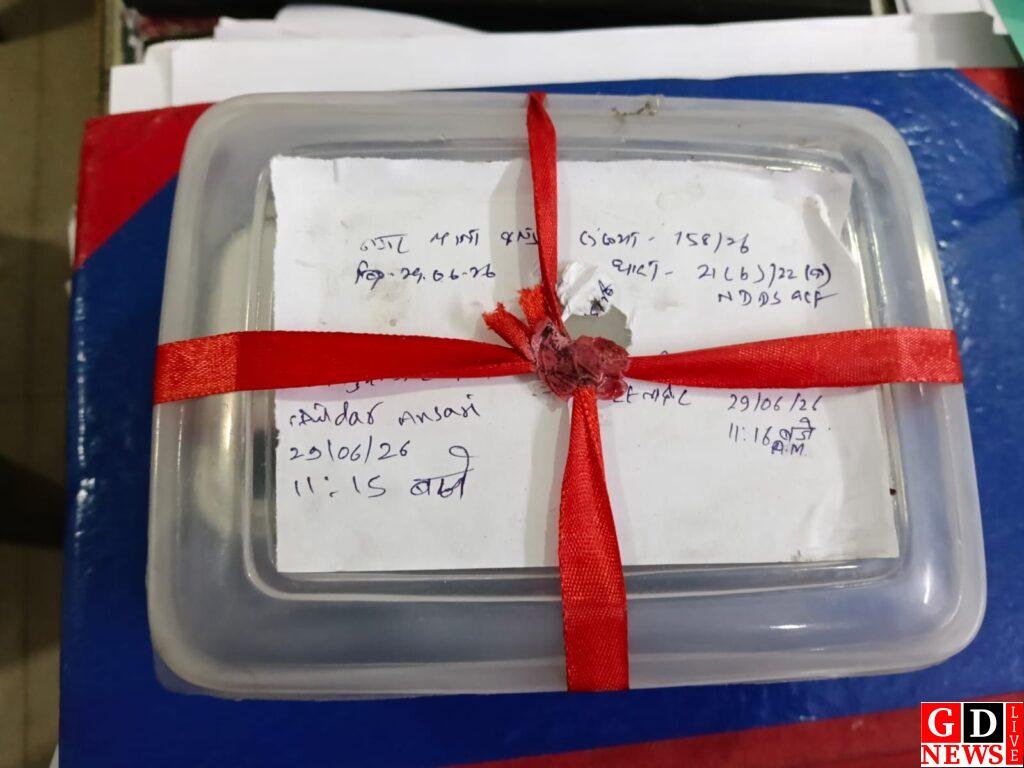 नगर थाना काण्ड संख्या - 158/26
दि०-29.06.26 धारा- 21(b)/22(b)
NDPS act
Ansari
29/06/26
11:15 बजे
29/06/26
11:16 बजे
A.M.
GD
NEWS
LIVE